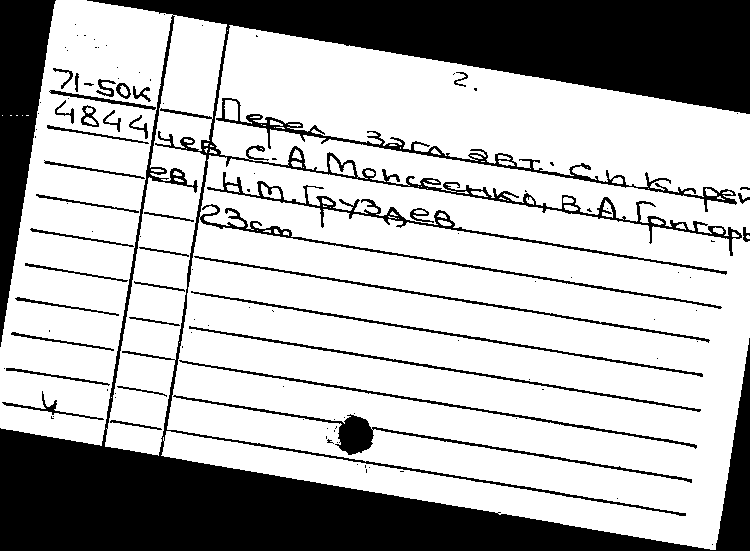 2.
71-50к
4844
Перед загл. авт.: С.П. Кирей
чев, С.А. Моисеенко, В.А. Григорь
ев, Н.М. Груздев
23см